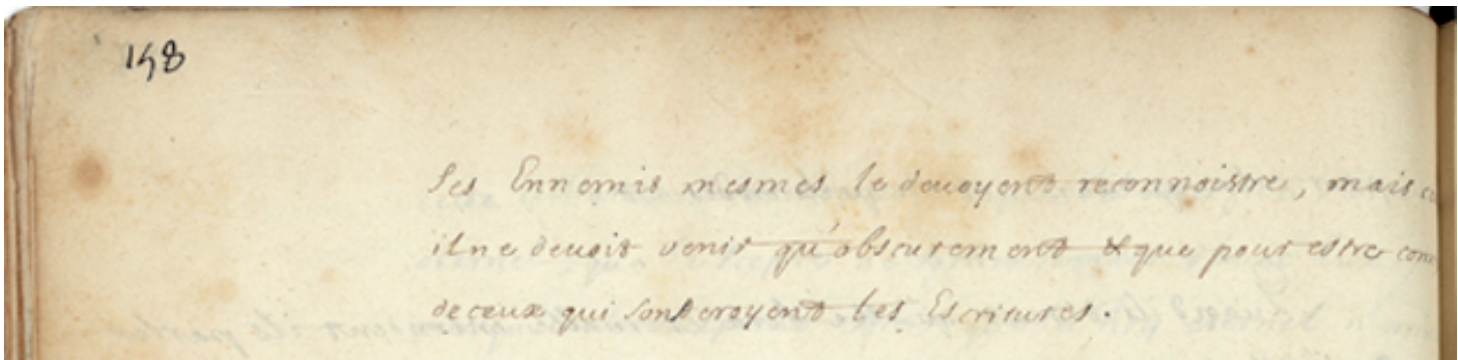 158
ses Ennemis mesmes le deuoyent reconnoistre, mais
il ne deuoit venir qu'obscurement & que pour estre
de ceux qui sonderoyent les Escritures.